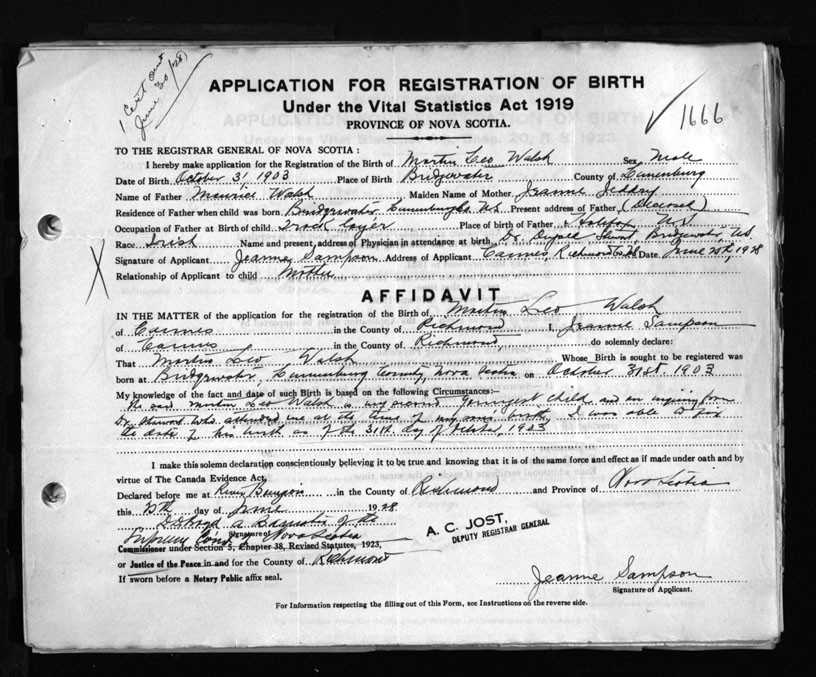 1 Cert out
June 30/28
APPLICATION FOR REGISTRATION OF BIRTH
Under the Vital Statistics Act 1919
PROVINCE OF NOVA SCOTIA.
1666
TO THE REGISTRAR GENERAL OF NOVA SCOTIA :
I hereby make application for the Registration of the Birth of Martin Leo Walsh Sex Male
Date of Birth October 31 1903 Place of Birth Bridgewater County of Lunenburg
Name of Father Walsh Maiden Name of Mother Jeanne
Residence of Father when child was born Bridgewater N.S. Present address of Father (Deceased)
Occupation of Father at Birth of child Track layer Place of birth of Father
Race Irish Name and present address of Physician in attendance at birth Dr Bridgewater, N.S.
Signature of Applicant Jeanne Sampson Address of Applicant Richmond Date June 20th, 1928
Relationship of Applicant to child Mother
AFFIDAVIT
IN THE MATTER of the application for the registration of the Birth of Martin Leo Walsh
of in the County of Richmond I, Jeanne Sampson
of in the County of Richmond, do solemnly declare:
That Martin Leo Walsh Whose Birth is sought to be registered was
born at Bridgewater, Lunenburg County, Nova Scotia on October 31st. 1903
My knowledge of the fact and date of such Birth is based on the following Circumstances:—
The said Martin Leo Walsh is my second youngest child and on inquiring from
Dr. who attended me at the time of my son's birth, I was able to fix
the date of his birth as of the 31st day of October, 1903
I make this solemn declaration conscientiously believing it to be true and knowing that it is of the same force and effect as if made under oath and by
virtue of The Canada Evidence Act.
Declared before me at River in the County of Richmond and Province of Nova Scotia
this 20th day of June 1928
a Barrister of the
Supreme Court of Nova Scotia
Signature of
Commissioner under Section 5, Chapter 38, Revised Statutes, 1923,
or Justice of the Peace in and for the County of Richmond
If sworn before a Notary Public affix seal.
A. C. JOST,
DEPUTY REGISTRAR GENERAL
Jeanne Sampson
Signature of Applicant.
For Information respecting the filling out of this Form, see Instructions on the reverse side.